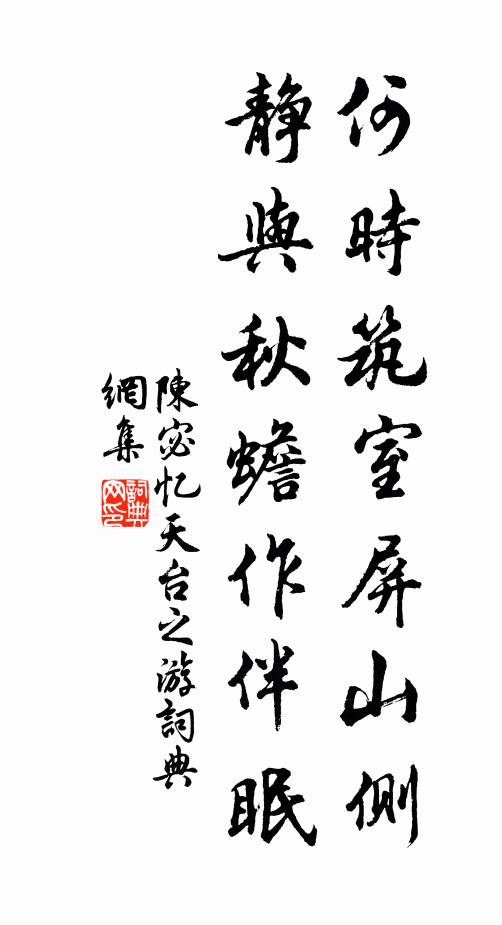 何時筑室屏山側
靜與秋蟾作伴眠
陳宓忆天台之游詞典
網集
詞典
网印